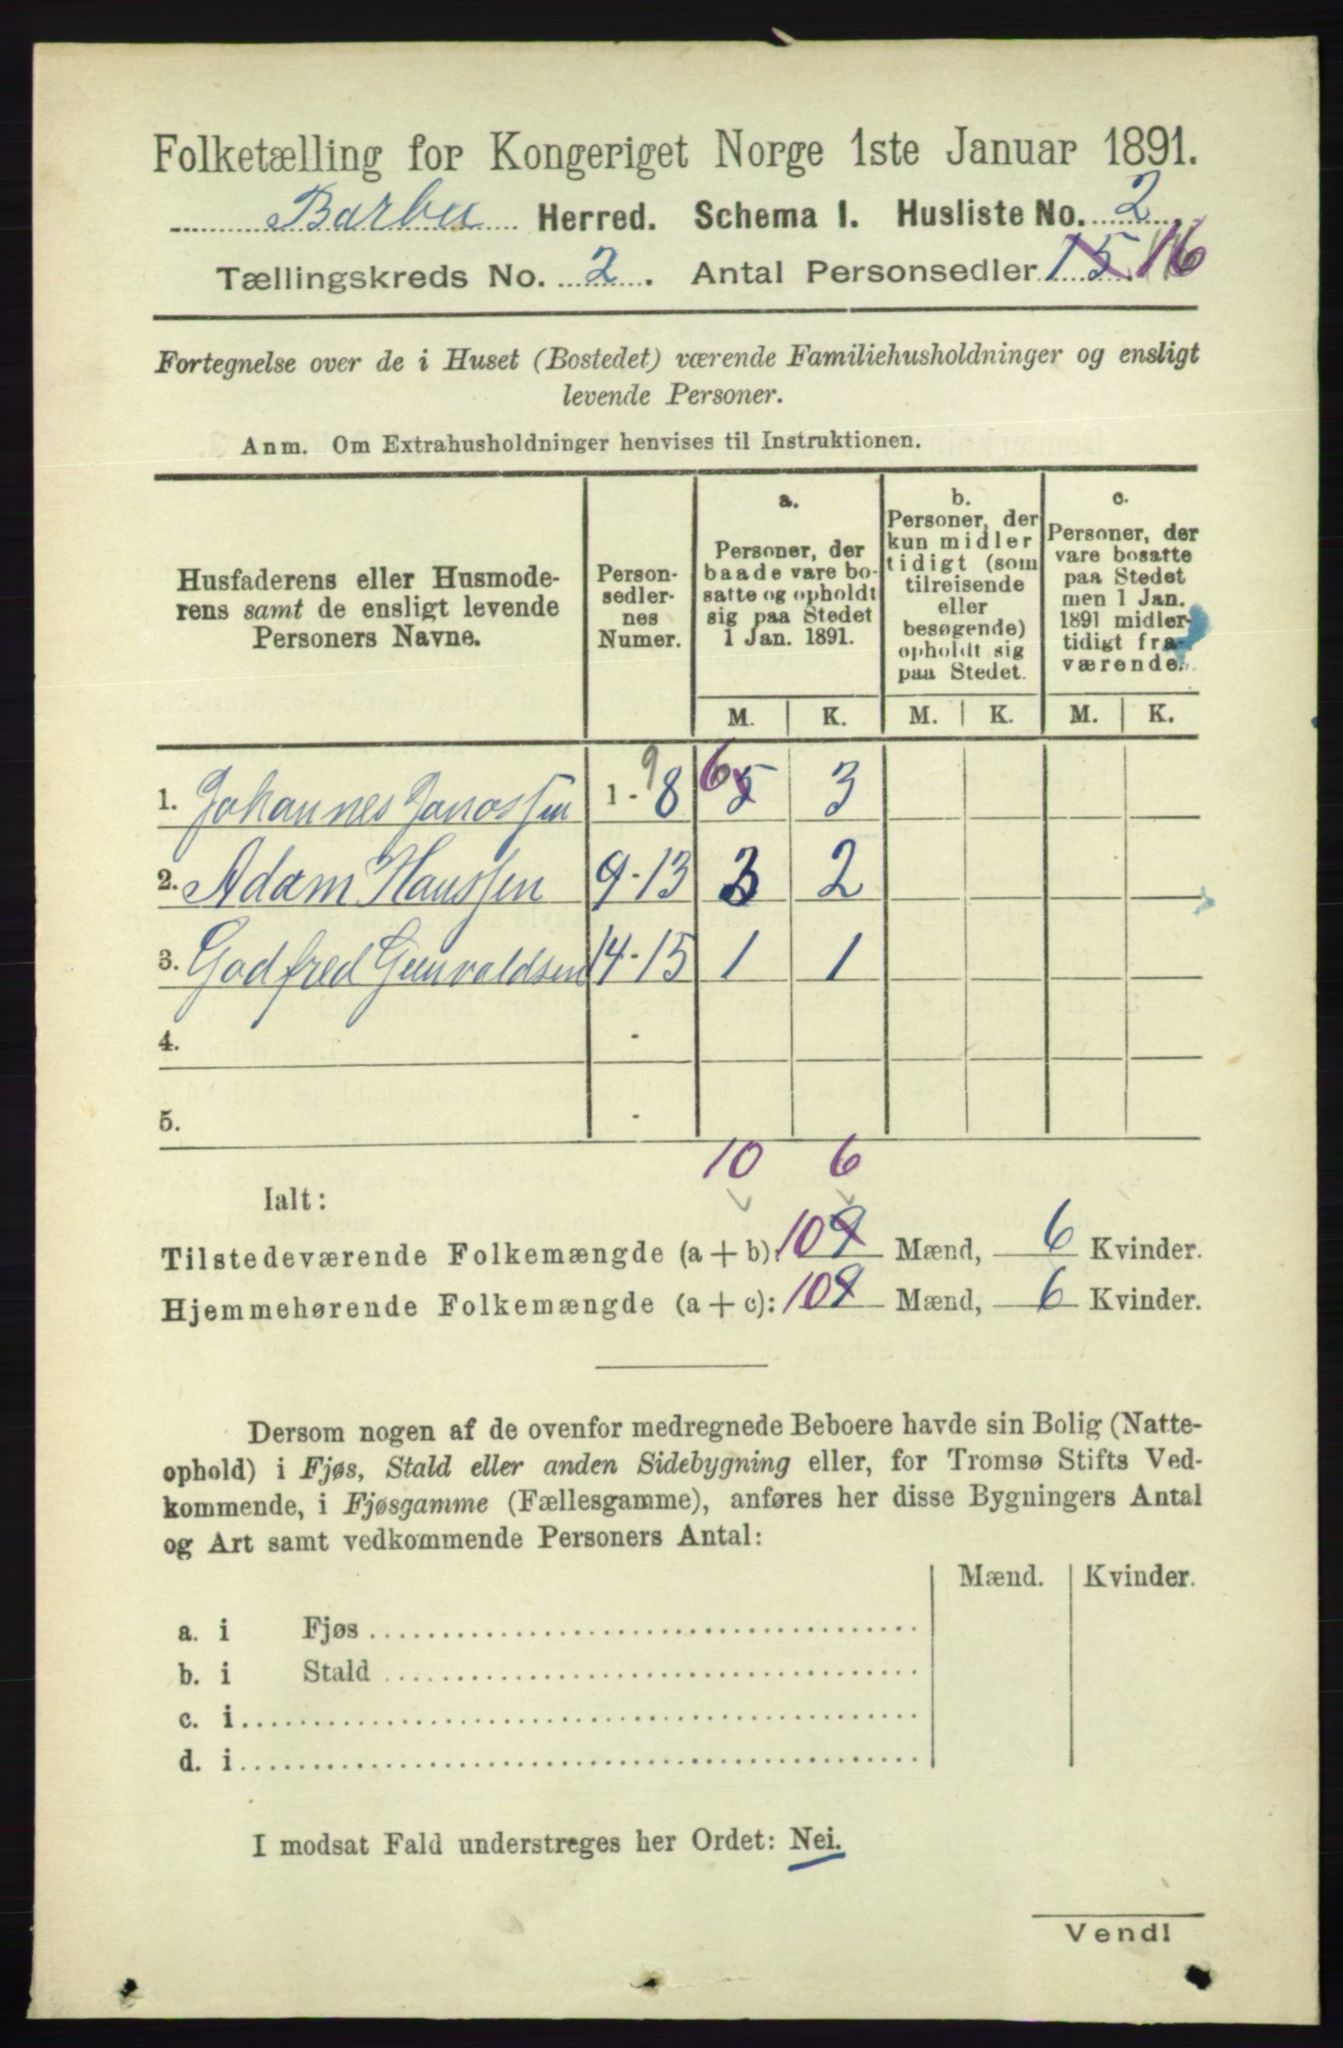 Folketælling for Kongeriget Norge 1ste Januar 1891.
Barbu Herred. Schema I. Husliste No. 2
Tællingskreds No. 2. Antal Personsedler 15 16
Fortegnelse over de i Huset (Bostedet) værende Familiehusholdninger og ensligt
levende Personer.
Anm. Om Extrahusholdninger henvises til Instruktionen.
Husfaderens eller Husmode-
rens samt de ensligt levende
Personers Navne.
Person-
sedler-
nes
Numer.
a.
Personer, der
baade vare bo-
satte og opholdt
sig paa Stedet
1 Jan. 1891.
b.
Personer, der
kun midler
tidigt (som
tilreisende
eller
besøgende)
opholdt sig
paa Stedet.
c.
Personer, der
vare bosatte
paa Stedet
men 1 Jan.
1891 midler-
tidigt fra-
værende.
M. K. M. K. M. K.
1. Johannes Jonassen 1 - 8 9 6 5 3
2. Adam Hanssen 9 - 13 3 2
3. Godfred Gunvaldsen 14 - 15 1 1
4. -
5. -
10 6
Ialt:
Tilstedeværende Folkemængde (a + b): 10 9 Mænd, 6 Kvinder.
Hjemmehørende Folkemængde (a + c): 10 9 Mænd, 6 Kvinder.
Dersom nogen af de ovenfor medregnede Beboere havde sin Bolig (Natte-
ophold) i Fjøs, Stald eller anden Sidebygning eller, for Tromsø Stifts Ved-
kommende, i Fjøsgamme (Fællesgamme), anføres her disse Bygningers Antal
og Art samt vedkommende Personers Antal:
Mænd. Kvinder.
a. i Fjøs
b. i Stald
c. i
d. i
I modsat Fald understreges her Ordet: Nei.
Vendl